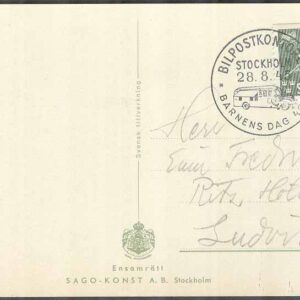 BILPOSTKON
STOCKHOLM
28.8.4
BARNENS DAG
Svensk tillverkning
Herr
Ritz, Hot
Ludvi
Ensamrätt
SAGO-KONST A.B. Stockholm